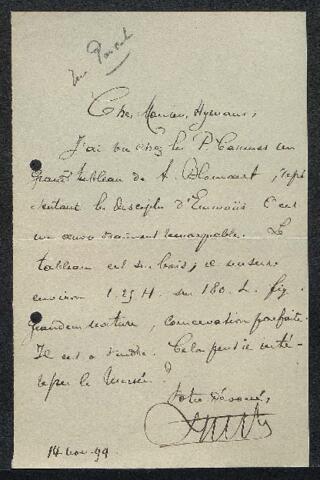 Cher Monsieur Hymans,
J'ai vu chez les P. Carmes un
grand tableau de A. Bloemaert, repré
sentant les disciples d'Emmaüs C'est
une œuvre vraiment remarquable. Le
tableau est sur bois; il mesure
environ 1.25 H. sur 180. L. fig.
grandeur nature, conservation parfaite.
Il est à vendre. Cela peut-il inté-
resser le Musée?
Votre dévoué,
14 nov. 99